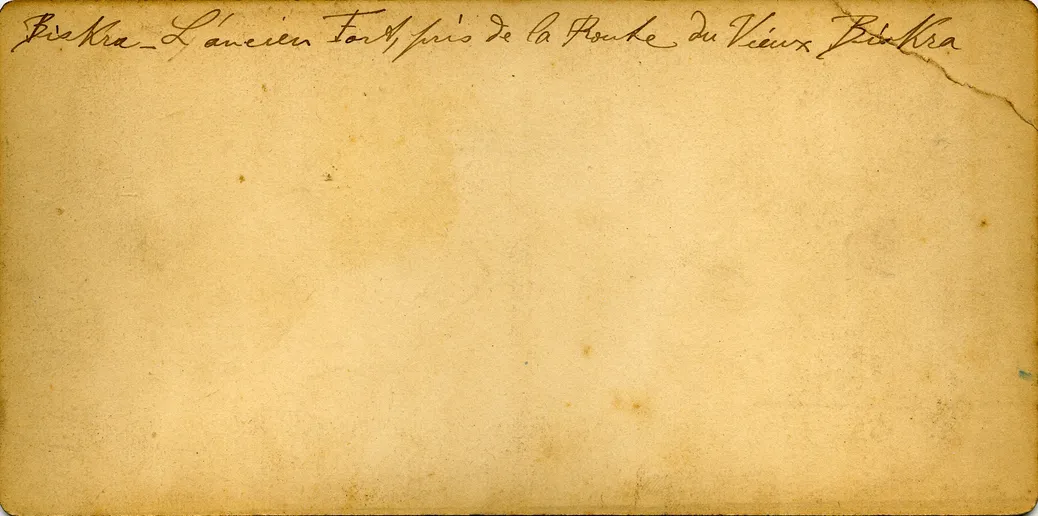 Biskra - L'ancien Fort, pris de la Route du Vieux Biskra